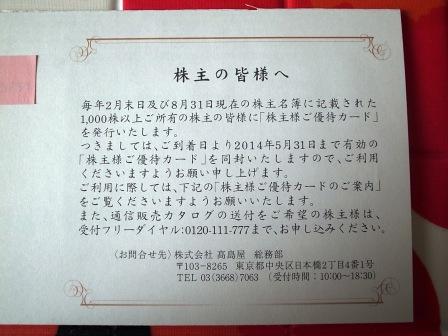 株主の皆様へ
毎年2月末日及び8月31日現在の株主名簿に記載された
1,000株以上ご所有の株主の皆様に「株主様ご優待カード」
を発行いたします。
つきましては、ご到着日より2014年5月31日まで有効の
「株主様ご優待カード」を同封いたしますので、ご利用
くださいますようお願い申し上げます。
ご利用に際しては、下記の「株主様ご優待カードのご案内」
をご覧くださいますようお願いいたします。
また、通信販売カタログの送付をご希望の株主様は、
受付フリーダイヤル:0120-111-777まで、お申し込みください。
〈お問合せ先〉株式会社 髙島屋 総務部
〒103-8265 東京都中央区日本橋2丁目4番1号
TEL 03(3668)7063 (受付時間:10:00〜18:30)